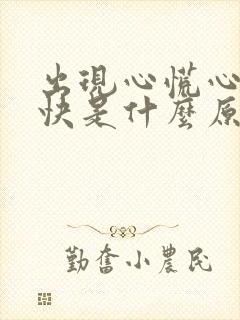 出現心慌心
快是什麼原
勤奮小農民